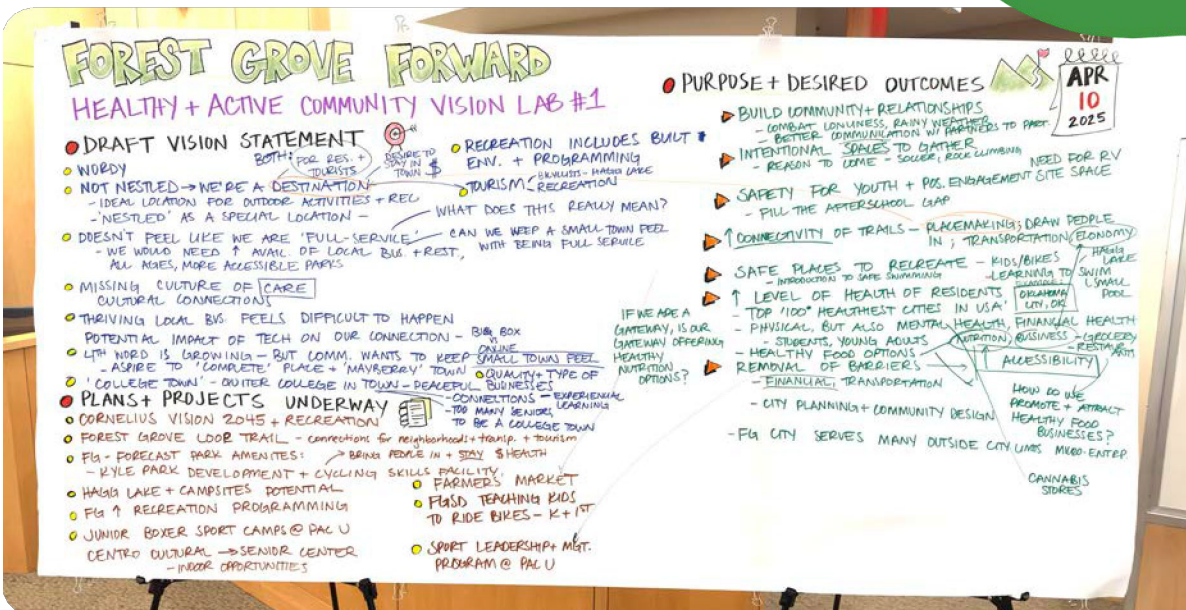 FOREST GROVE FORWARD
HEALTHY + ACTIVE COMMUNITY VISION LAB #1
DRAFT VISION STATEMENT
WORDY
BOTH: FOR RES. +
TOURISTS
DESIRE TO
STAY IN
TOWN $
NOT NESTLED → WE'RE A DESTINATION
- IDEAL LOCATION FOR OUTDOOR ACTIVITIES + REC
- 'NESTLED' AS A SPECIAL LOCATION -
DOESN'T FEEL LIKE WE ARE 'FULL-SERVICE'
- WE WOULD NEED ↑ AVAIL. OF LOCAL BUS. + REST,
ALL AGES, MORE ACCESSIBLE PARKS
MISSING CULTURE OF CARE
CULTURAL CONNECTIONS
THRIVING LOCAL BUS. FEELS DIFFICULT TO HAPPEN
POTENTIAL IMPACT OF TECH ON OUR CONNECTION - BIG BOX
VS
ONLINE
4TH WORD IS GROWING - BUT COMM. WANTS TO KEEP SMALL TOWN FEEL
- ASPIRE TO 'COMPLETE' PLACE + 'MAYBERRY' TOWN
QUALITY + TYPE OF
BUSINESSES
'COLLEGE TOWN' - QUITER COLLEGE IN TOWN - PEACEFUL
- CONNECTIONS - EXPERIENTIAL
LEARNING
- TOO MANY SENIORS,
TO BE A COLLEGE TOWN
RECREATION INCLUDES BUILT
ENV. + PROGRAMMING
TOURISM - BICYLISTS - HAGG LAKE
RECREATION
WHAT DOES THIS REALLY MEAN?
CAN WE KEEP A SMALL TOWN FEEL
WITH BEING FULL SERVICE
PLANS + PROJECTS UNDERWAY
CORNELIUS VISION 2045 + RECREATION
FOREST GROVE LOOP TRAIL - connections for neighborhoods + transp. + tourism
FG - FORECAST PARK AMENITIES: → BRING PEOPLE IN + STAY $ HEALTH
- KYLE PARK DEVELOPMENT + CYCLING SKILLS FACILITY
HAGG LAKE + CAMPSITES POTENTIAL
FG ↑ RECREATION PROGRAMMING
JUNIOR BOXER SPORT CAMPS @ PAC U
CENTRO CULTURAL → SENIOR CENTER
- INDOOR OPPORTUNITIES
FARMERS' MARKET
FGSD TEACHING KIDS
TO RIDE BIKES - K + 1ST
SPORT LEADERSHIP + MGT.
PROGRAM @ PAC U
PURPOSE + DESIRED OUTCOMES
APR
10
2025
BUILD COMMUNITY + RELATIONSHIPS
- COMBAT LONLINESS, RAINY WEATHER
- BETTER COMMUNICATION W/ PARTNERS TO PART.
INTENTIONAL SPACES TO GATHER
- REASON TO COME - SOCCER, ROCK CLIMBING
NEED FOR RV
SITE SPACE
SAFETY FOR YOUTH + POS. ENGAGEMENT
- FILL THE AFTERSCHOOL GAP
↑ CONNECTIVITY OF TRAILS - PLACEMAKING; DRAW PEOPLE
IN; TRANSPORTATION, ECONOMY
HAGG
LAKE
SAFE PLACES TO RECREATE - KIDS/BIKES
- INTRODUCTION TO SAFE SWIMMING
- LEARNING TO SWIM
SMALL
POOL
↑ LEVEL OF HEALTH OF RESIDENTS
EXAMPLE:
OKLAHOMA
CITY, OK
- TOP '100' HEALTHIEST CITIES IN USA'
- PHYSICAL, BUT ALSO MENTAL HEALTH, FINANCIAL HEALTH
- STUDENTS, YOUNG ADULTS
NUTRITION
BUSINESS - GROCERY
- RESTAURANTS
- HEALTHY FOOD OPTIONS
ACCESSIBILITY
REMOVAL OF BARRIERS
- FINANCIAL, TRANSPORTATION
- CITY PLANNING + COMMUNITY DESIGN
HOW DO WE
PROMOTE + ATTRACT
HEALTHY FOOD
BUSINESSES?
- FG CITY SERVES MANY OUTSIDE CITY LIMITS
MICRO-ENTRP.
CANNABIS
STORES
IF WE ARE A
GATEWAY, IS OUR
GATEWAY OFFERING
HEALTHY
NUTRITION
OPTIONS?